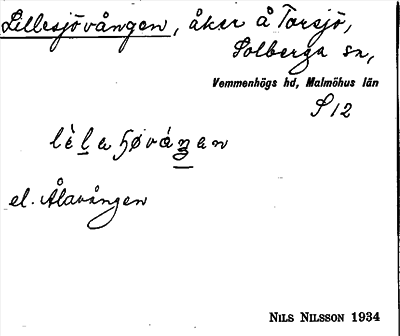 Lillesjövången, åker å Torsjö,
Solberga sn,
Vemmenhögs hd, Malmöhus län
S 12
el. Ålavången
NILS NILSSON 1934